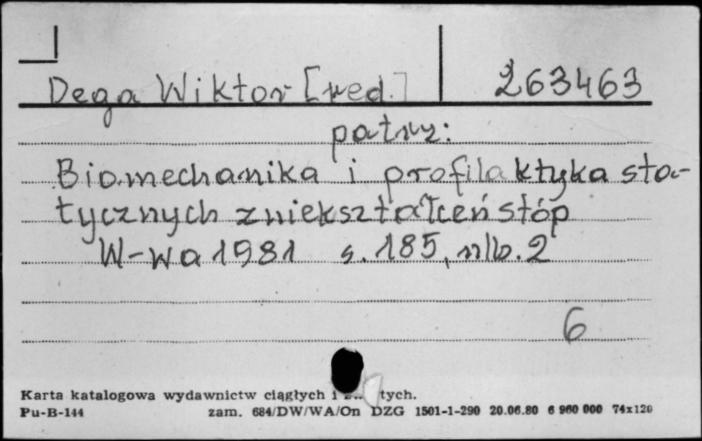 Dega Wiktor [red.] 263463
patrz:
Biomechanika i profilaktyka sta-
tycznych zniekształceń stóp
W-wa 1981 s. 185, nlb. 2
6
Karta katalogowa wydawnictw ciągłych i tych.
Pu-B-144 zam. 684/DW/WA/On DZG 1501-1-290 20.06.80 6 960 000 74x120